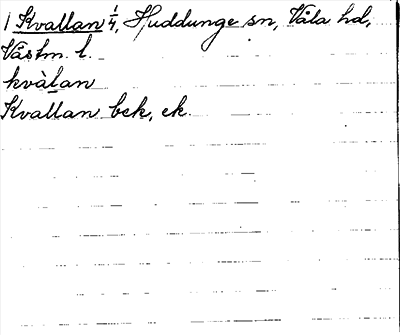 1 Kvallan 1/4, Huddunge sn, Våla hd,
Västm. l.
kvàlan
Kvallan bek, ek.